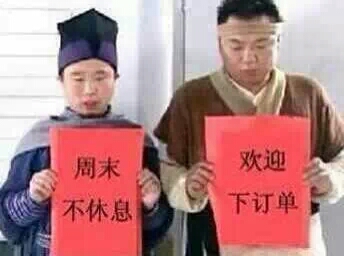 周末
不休息
欢迎
下订单